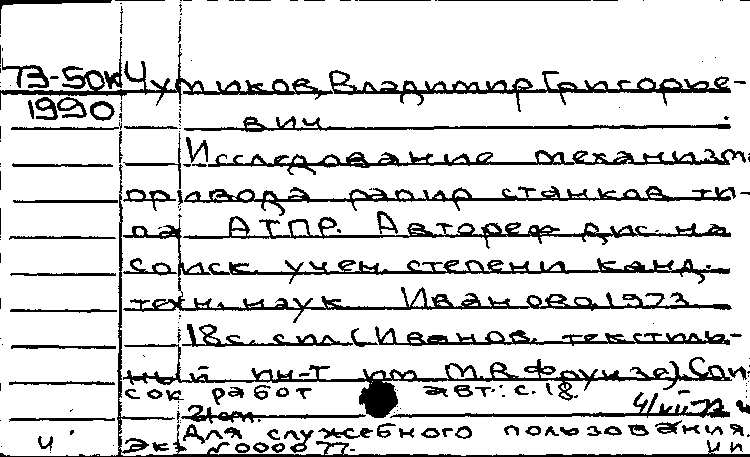 73-50к Чутиков, Владимир Григорье-
1990
вич.
Исследование механизма
привода рапир станков ти-
па АТПР. Автореф. дис. на
соиск. учен. степени канд.
техн. наук. Иваново, 1973.
18 с. с ил. (Иванов. текстиль-
ный ин-т им М.В. Фрунзе). Спи-
сок работ авт.: с. 18.
21 см.
Для служебного пользования.
ч. Экз. №000077. ч п